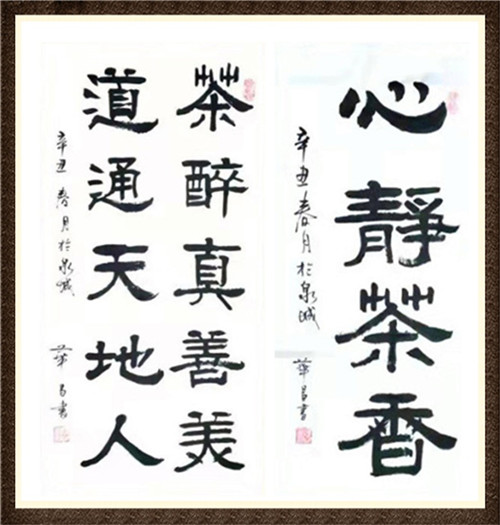 心靜茶香
辛丑春月於泉城
華昌書
茶醉真善美
道通天地人
辛丑春月於泉城
華昌書